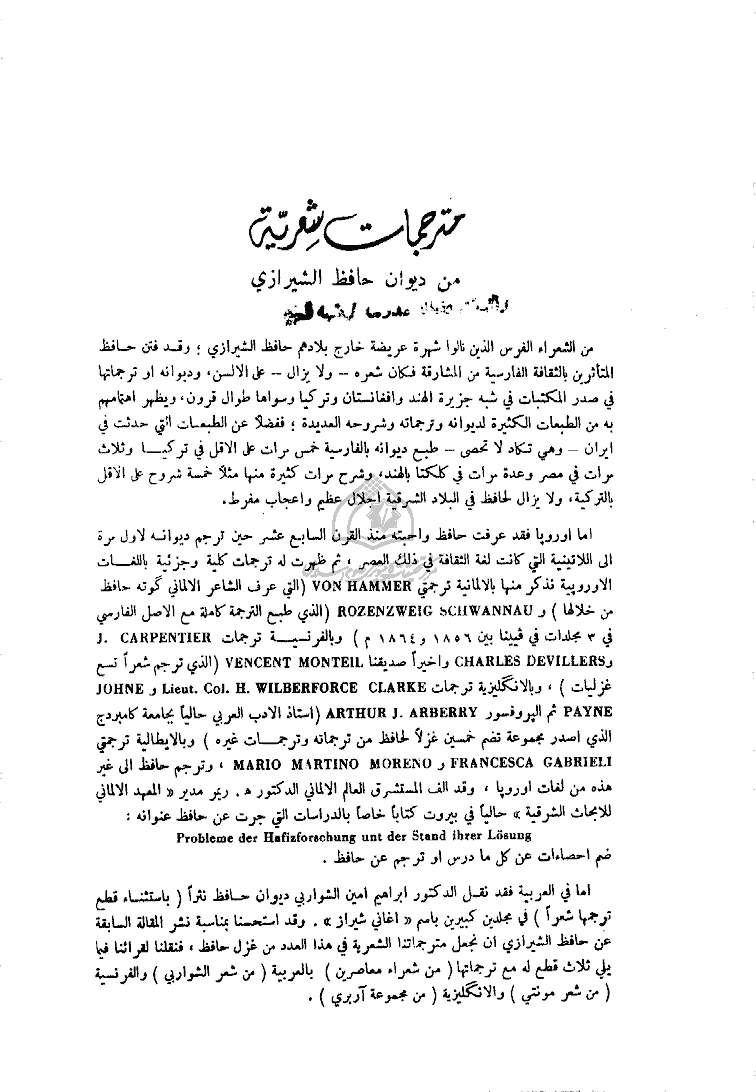 مترجمات شعريّة
من ديوان حافظ الشيرازي
من الشعراء الفرس الذين نالوا شهرة عريضة خارج بلادهم حافظ الشيرازي ؛ وقد فتن حافظ
المتأثرين بالثقافة الفارسية من المشارقة فكان شعره – ولا يزال – على الالسن، وديوانه او ترجماتها
في صدر المكتبات في شبه جزيرة الهند وافغانستان وتركيا وسواها طوال قرون، ويظهر اهتمامهم
به من الطبعات الكثيرة لديوانه وترجماته وشروحه العديدة ؛ ففضلاً عن الطبعات التي حدثت في
ايران – وهي تكاد لا تحصى – طبع ديوانه بالفارسية خمس مرات على الاقل في تركيا وثلاث
مرات في مصر وعدة مرات في كلكتا بالهند، وشرح مرات كثيرة منها مثلاً خمسة شروح على الاقل
بالتركية، ولا يزال لحافظ في البلاد الشرقية اجلال عظيم واعجاب مفرط.
اما اوروپا فقد عرفت حافظ واحبته منذ القرن السابع عشر حين ترجم ديوانه لاول مرة
الى اللاتينية التي كانت لغة الثقافة في ذلك العصر ، ثم ظهرت له ترجمات كلية وجزئية باللغات
الاوروپية نذكر منها بالالمانية ترجمتي VON HAMMER (التي عرف الشاعر الالماني گوته حافظ
من خلالها ) و ROZENZWEIG SCHWANNAU (الذي طبع الترجمة كاملة مع الاصل الفارسي
في ٣ مجلدات في ڤيينا بين ١٨٥٦ و ١٨٦٤ م ) وبالفرنسية ترجمات J. CARPENTIER
وCHARLES DEVILLERS واخيراً صديقنا VENCENT MONTEIL (الذي ترجم شعراً تسع
غزليات ) ، وبالانگليزية ترجمات Lieut. Col. H. WILBERFORCE CLARKE و JOHNE
PAYNE ثم الپروفسور ARTHUR J. ARBERRY (استاذ الادب العربي حالياً بجامعة كامبردج
الذي اصدر مجموعة تضم خمسين غزلاً لحافظ من ترجماته وترجمات غيره ) وبالايطالية ترجمتي
FRANCESCA GABRIELI و MARIO MARTINO MORENO ، وترجم حافظ الى غير
هذه من لغات اوروپا ، وقد الف المستشرق العالم الالماني الدكتور ه‍. ريمر مدير « المعهد الالماني
للابحاث الشرقية » حالياً في بيروت كتاباً خاصاً بالدراسات التي جرت عن حافظ عنوانه :
Probleme der Hafizforschung unt der Stand ihrer Lösung
ضم احصاءات عن كل ما درس او ترجم عن حافظ .
اما في العربية فقد نقل الدكتور ابراهيم امين الشواربي ديوان حافظ نثراً ( باستثناء قطع
ترجمها شعراً ) في مجلدين كبيرين باسم « اغاني شيراز » . وقد استحسنا بمناسبة نشر المقالة السابقة
عن حافظ الشيرازي ان نجعل مترجماتنا الشعرية في هذا العدد من غزل حافظ ، فنقلنا لقرائنا فيما
يلي ثلاث قطع له مع ترجماتها ( من شعراء معاصرين ) بالعربية ( من شعر الشواربي ) والفرنسية
( من شعر مونتي ) والانگليزية ( من مجموعة آربري ) .